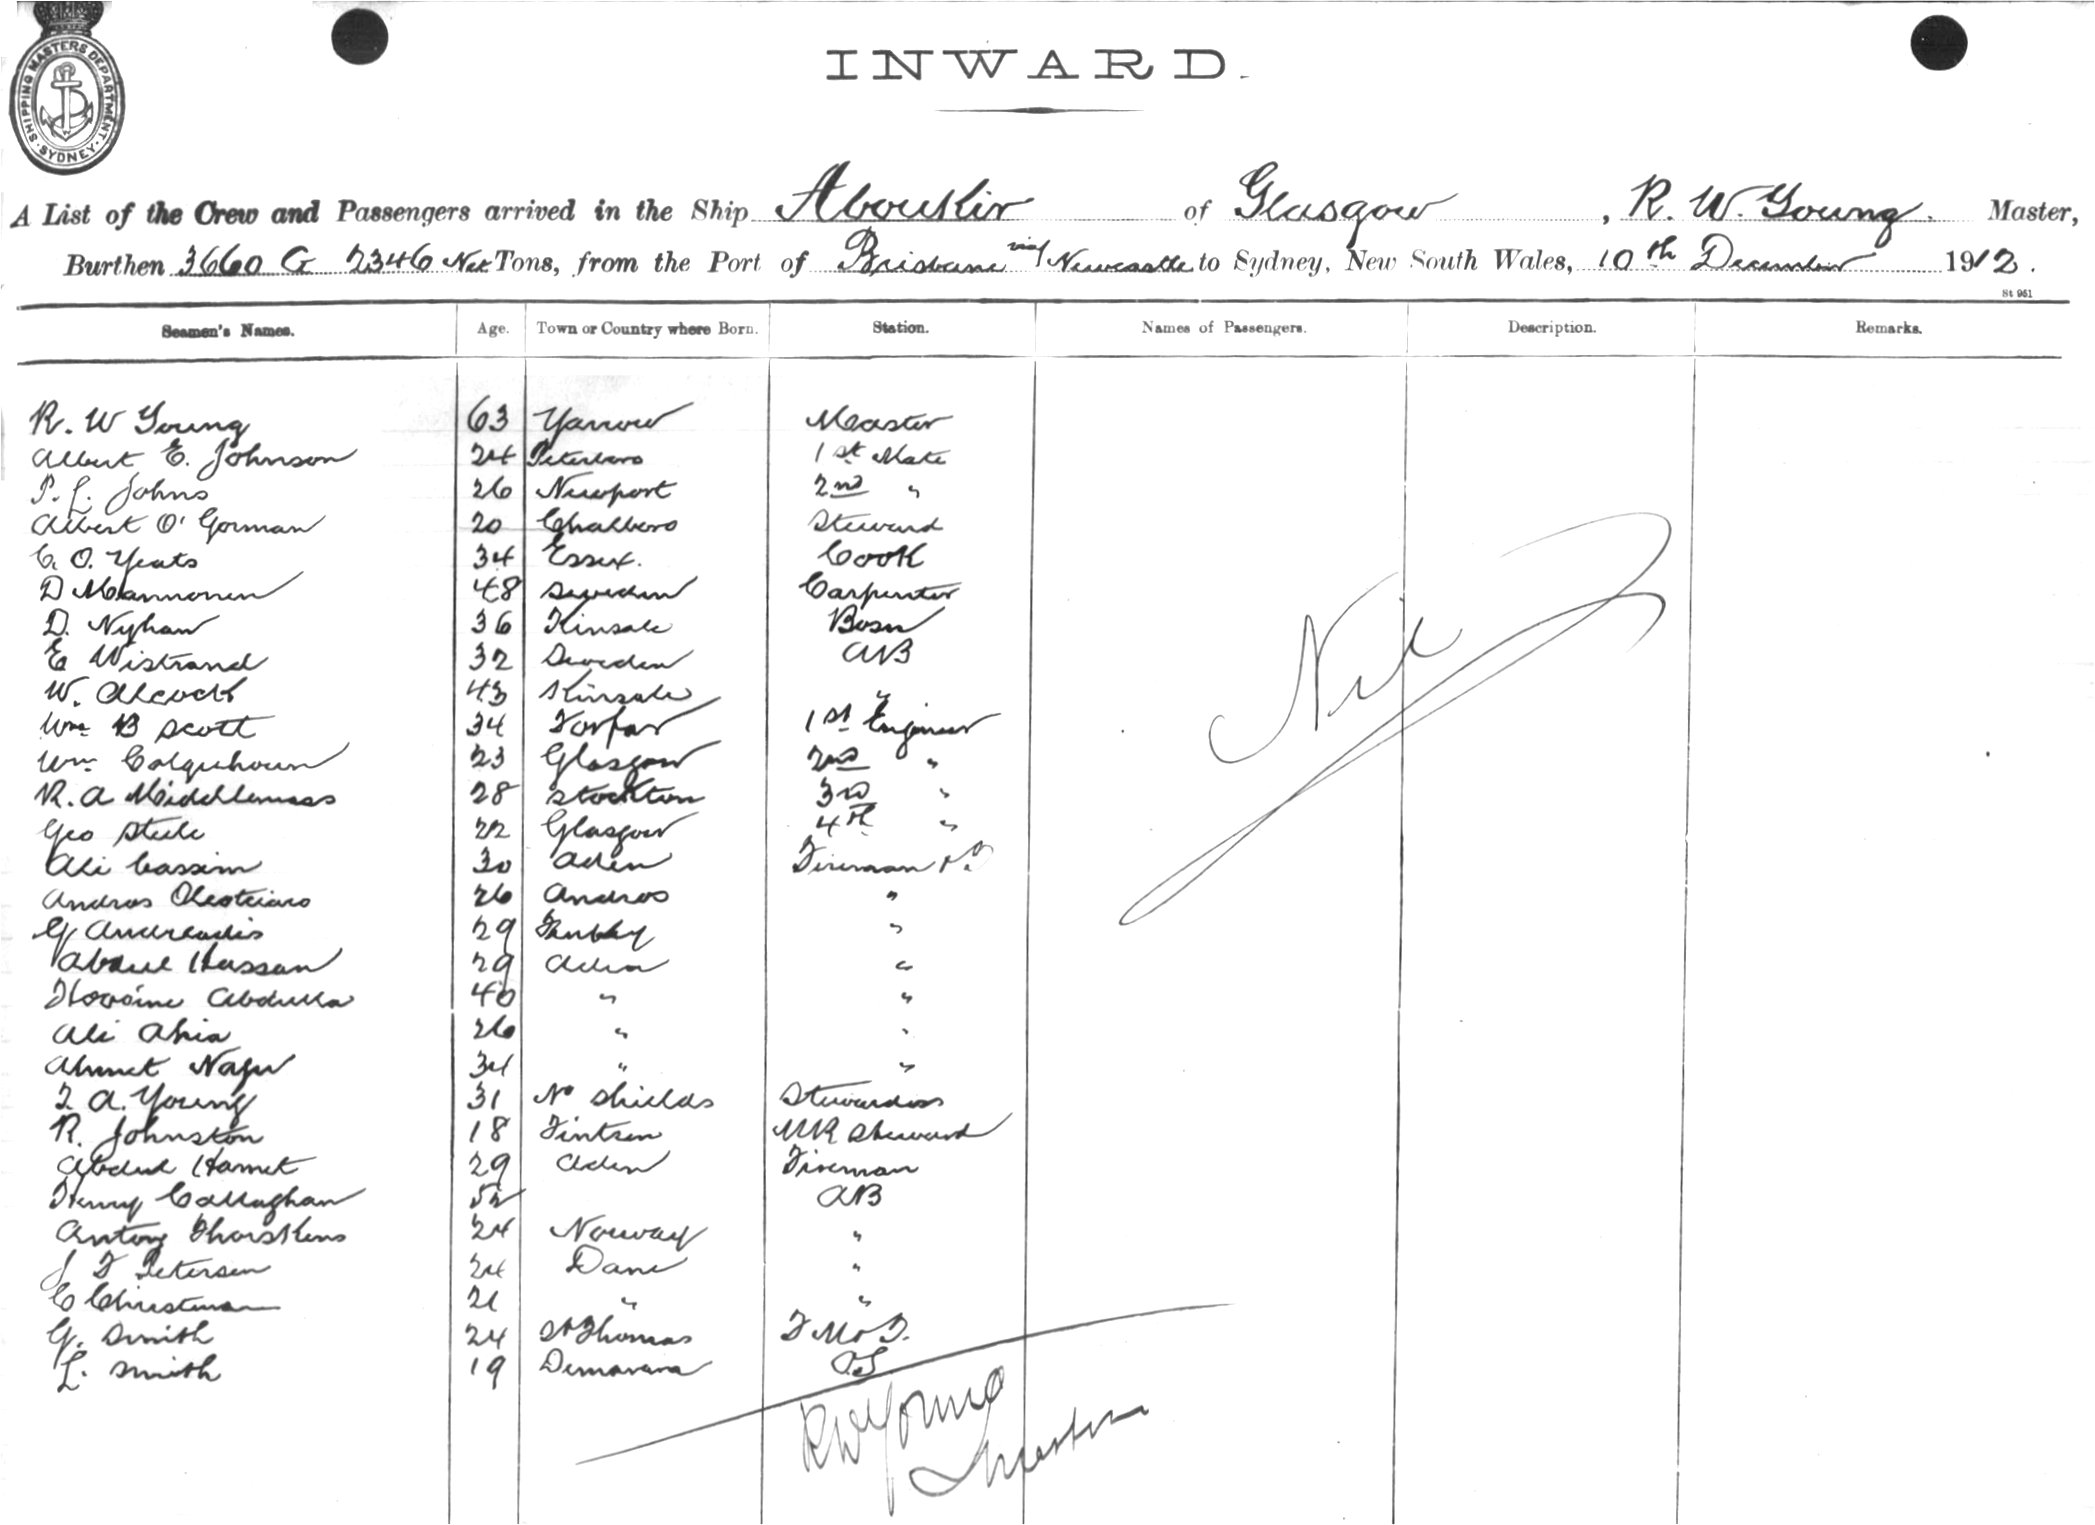 SHIPPING MASTERS DEPARTMENT. SYDNEY.
INWARD.
A List of the Crew and Passengers arrived in the Ship Aboukir of Glasgow, R. W. Young. Master,
Burthen 3660 G 2346 Net Tons, from the Port of Brisbane via Newcastle to Sydney, New South Wales, 10th December 1912.
St 951
Seamen's Names. Age. Town or Country where Born. Station. Names of Passengers. Description. Remarks.
R. W Young 63 Yarrow Master
Albert E. Johnson 24 Peterboro 1st Mate
P. L. Johns 26 Newport 2nd "
Albert O'Gorman 20 Steward
C. O. Yeats 34 Essex. Cook
D Mannonen 48 Sweden Carpenter
D. Nyhan 36 Kinsale Bosn
E Wistrand 32 Sweden AB
W. Alcock 43 Kinsale "
Wm B Scott 34 Forfar 1st Engineer
Wm Colquhoun 23 Glasgow 2nd "
R. A Middlemass 28 Stockton 3rd "
Geo Steele 22 Glasgow 4th "
Ali Cassim 30 Aden Fireman
Andros 26 Andros "
G Andreadis 29 "
Abdul Hassan 29 Aden "
Abdulla 40 " "
Ali Ahia 26 " "
Ahmet 34 " "
I. A. Young 31 No Shields Stewardess
R. Johnston 18 MR Steward
Abdul Hamet 29 Aden Fireman
Henry Callaghan 52 AB
Antony Thorskens 24 Norway "
J F Petersen 24 Dane "
C Christman 21 " "
G. Smith 24 St Thomas F M & T.
L. Smith 19 Demarara OS
Nil
RW Young
Master